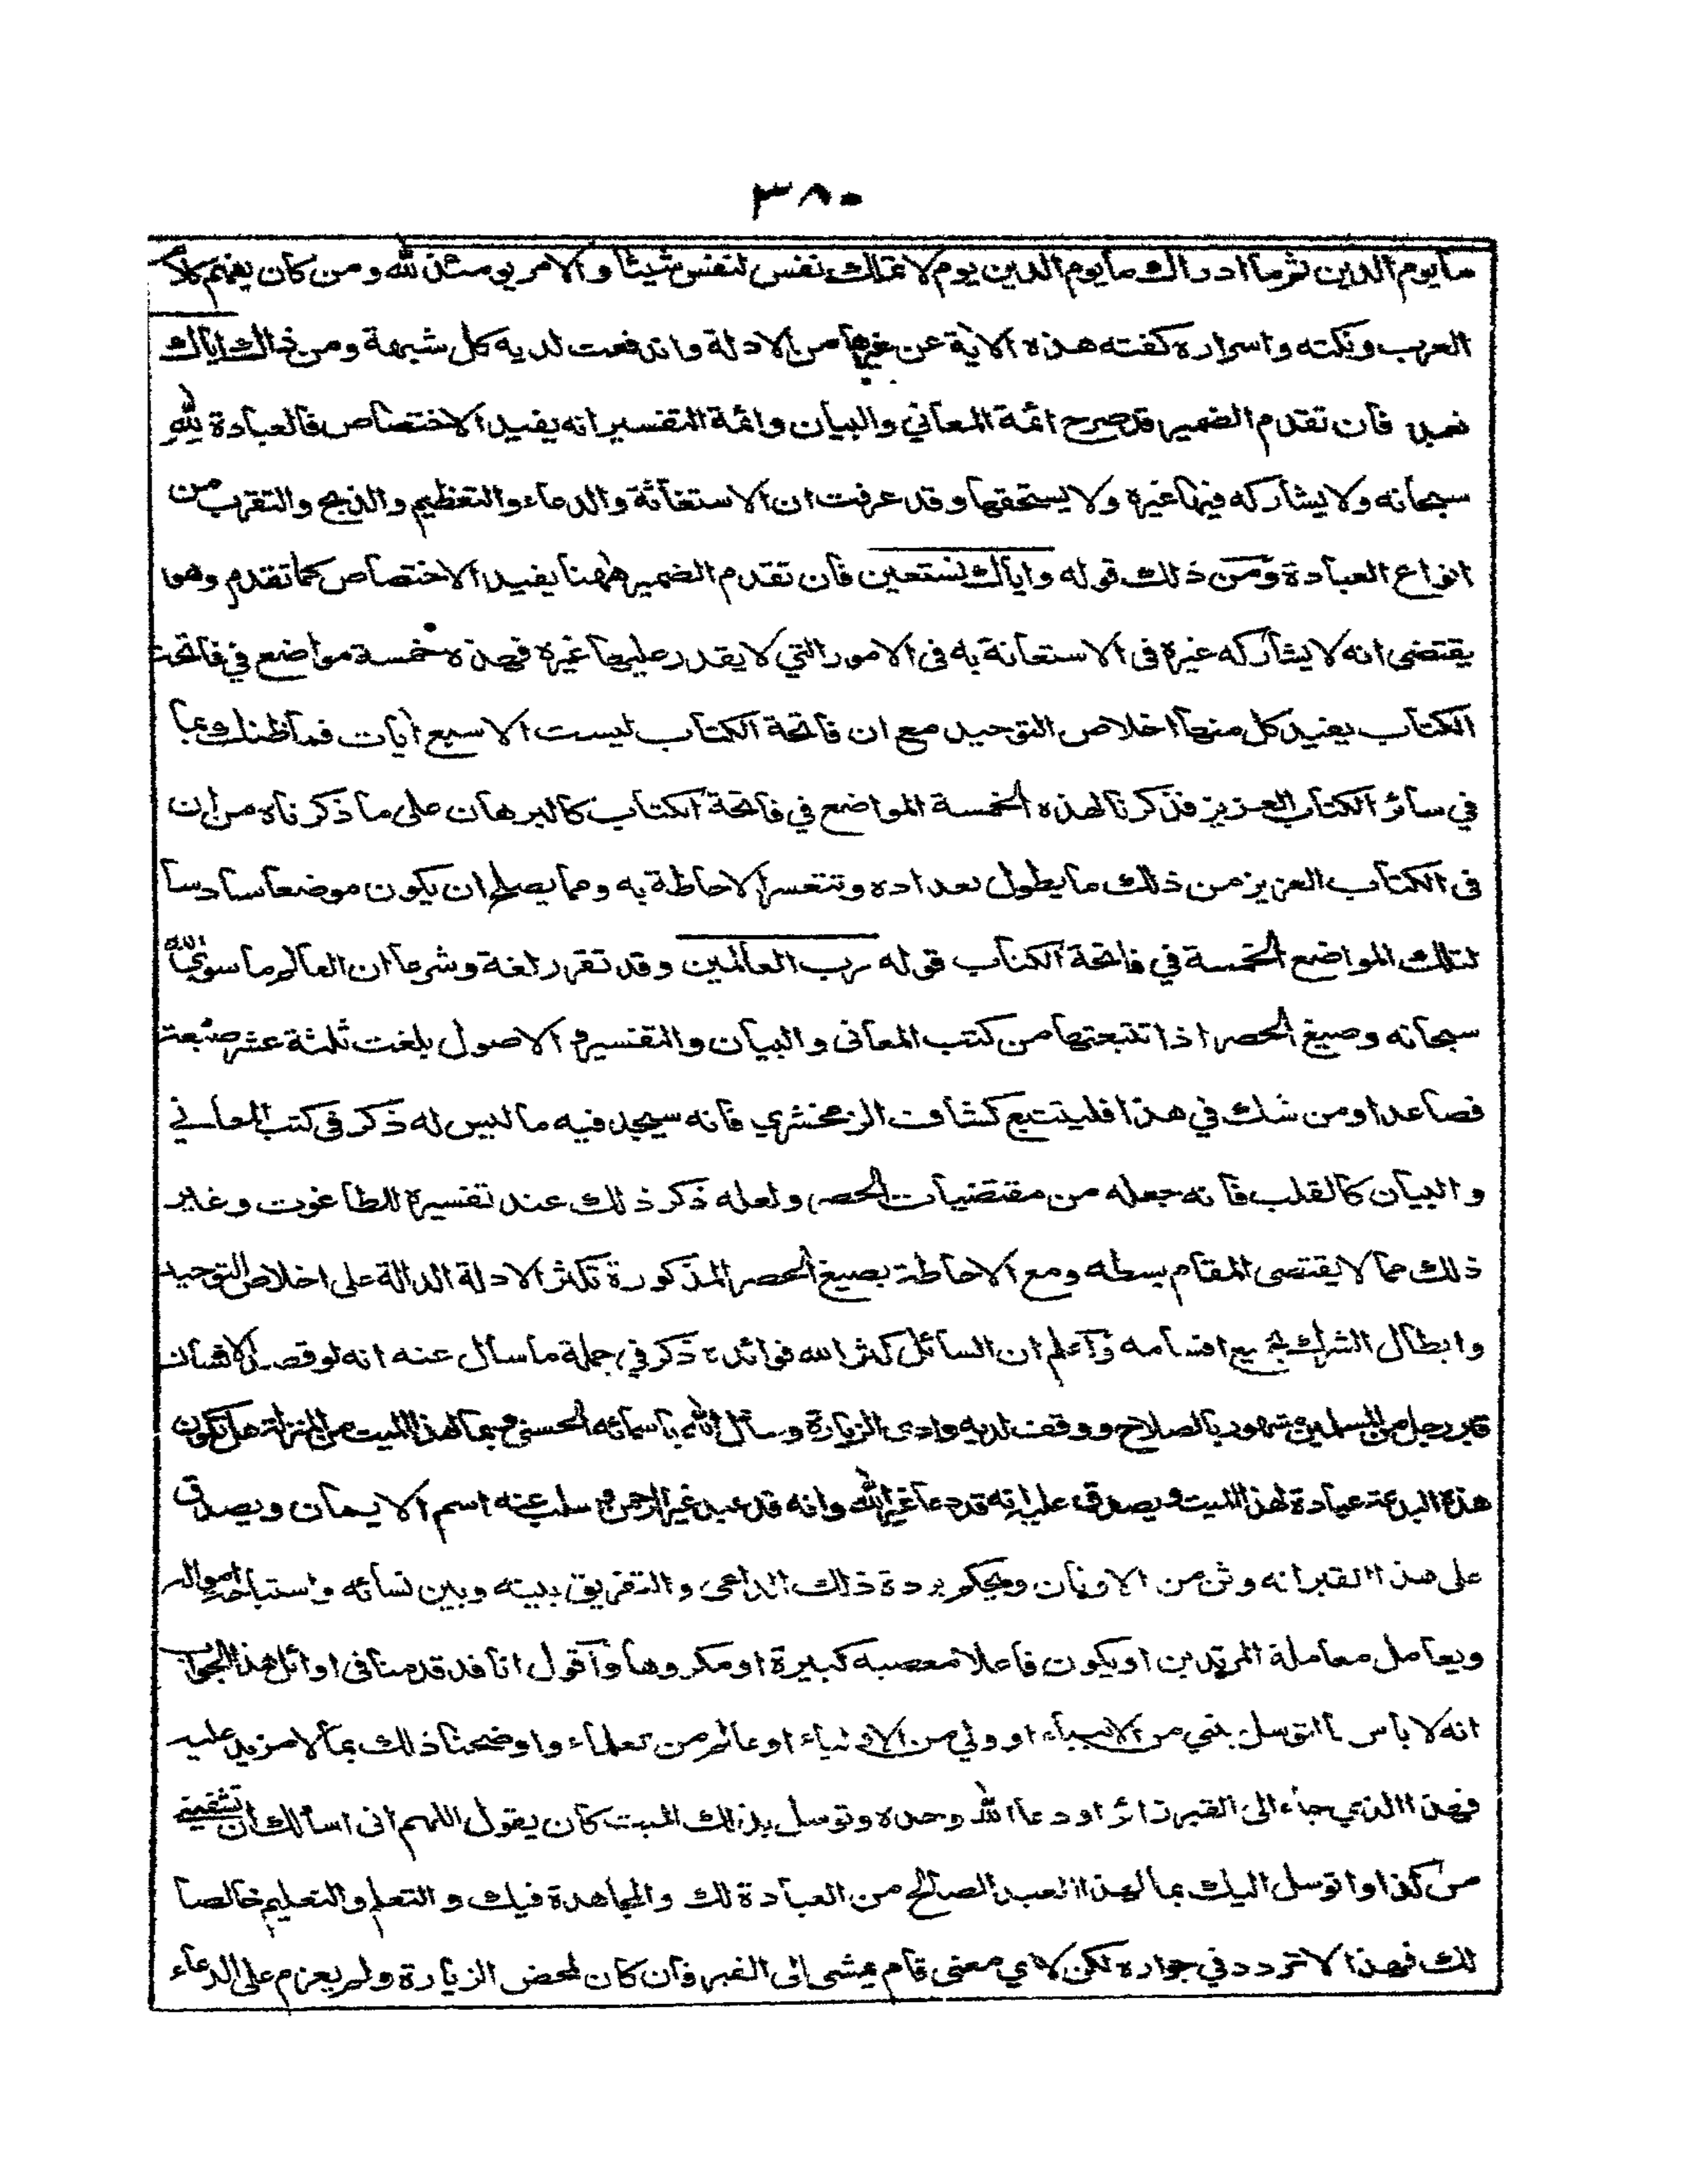 ٣٨٠
ما يوم الدين ثم ما ادراك ما يوم الدين يوم لا تملك نفس لنفس شيئا والامر يومئذ لله ومن كان يفهم كلام
العرب ونكته واسراره كفته هذه الاية عن غيرها من الادلة واندفعت لديه كل شبهة ومن ذلك اياك
نعبد فان تقدم الضمير قد صرح ائمة المعاني والبيان وائمة التفسير انه يفيد الاختصاص فالعبادة لله
سبحانه ولا يشاركه فيها غيره ولا يستحقها وقد عرفت ان الاستغاثة والدعاء والتعظيم والذبح والتقرب من
انواع العبادة ومن ذلك قوله واياك نستعين فان تقدم الضمير ههنا يفيد الاختصاص كما تقدم وهو
يقتضى انه لا يشاركه غيره فى الاستعانة به فى الامور التي لا يقدر عليها غيره فهذه خمسة مواضع في فاتحة
الكتاب يفيد كل منها اخلاص التوحيد مع ان فاتحة الكتاب ليست الا سبع أيات فما ظنك بما
في سائر الكتاب العزيز فذكرنا لهذه الخمسة المواضع في فاتحة الكتاب كالبرهان على ما ذكرناه من ان
فى الكتاب العزيز من ذلك ما يطول تعداده وتتعسر الاحاطة به ومما يصلح ان يكون موضعا سادسا
لتلك المواضع الخمسة في فاتحة الكتاب قوله رب العالمين وقد تقرر لغة وشرعا ان العالم ما سوى الله
سبحانه وصيغ الحصر اذا تتبعتها من كتب المعانى والبيان والتفسير والاصول بلغت ثلثة عشر صيغة
فصاعدا ومن شك في هذا فليتتبع كشاف الزمخشري فانه سيجد فيه ما ليس له ذكر فى كتب المعاني
والبيان كالقلب فانه جعله من مقتضيات الحصر ولعله ذكر ذلك عند تفسيره للطاغوت وغير
ذلك مما لا يقتضى المقام بسطه ومع الاحاطة بصيغ الحصر المذكورة تكثر الادلة الدالة على اخلاص التوحيد
وابطال الشرك بجميع اقسامه وآعلم ان السائل كثر الله فوائده ذكر في جملة ما سأل عنه انه لو قصد الانسان
قبر رجل من المسلمين مشهور بالصلاح ووقف لديه وادى الزيارة وسأل الله باسمائه الحسنى وبما لهذا الميت من المنزلة هل تكون
هذه البدعة عبادة لهذا الميت ويصدق عليه انه قد دعا غير الله وانه قد عبد غير الرحمن وسلب عنه اسم الايمان ويصدق
على هذا القبر انه وثن من الاوثان ويحكم بردة ذلك الداعى والتفريق بينه وبين نسائه واستباحة امواله
ويعامل معاملة المرتدين او يكون فاعلا معصية كبيرة او مكروها وآقول انا قد قدمنا فى اوائل هذا الجواب
انه لا بأس بالتوسل بنبي من الانبياء او ولي من الاولياء او عالم من العلماء واوضحنا ذلك بما لا مزيد عليه
فهذا الذي جاء الى القبر زائرا ودعا الله وحده وتوسل بذلك الميت كان يقول اللهم انى اسألك ان تشفينى
من كذا واتوسل اليك بما لهذا العبد الصالح من العبادة لك والمجاهدة فيك والتعلم والتعليم خالصا
لك فهذا لا تردد في جوازه لكن لاي معنى قام يمشى الى القبر فان كان لمحض الزيارة ولم يعزم على الدعاء